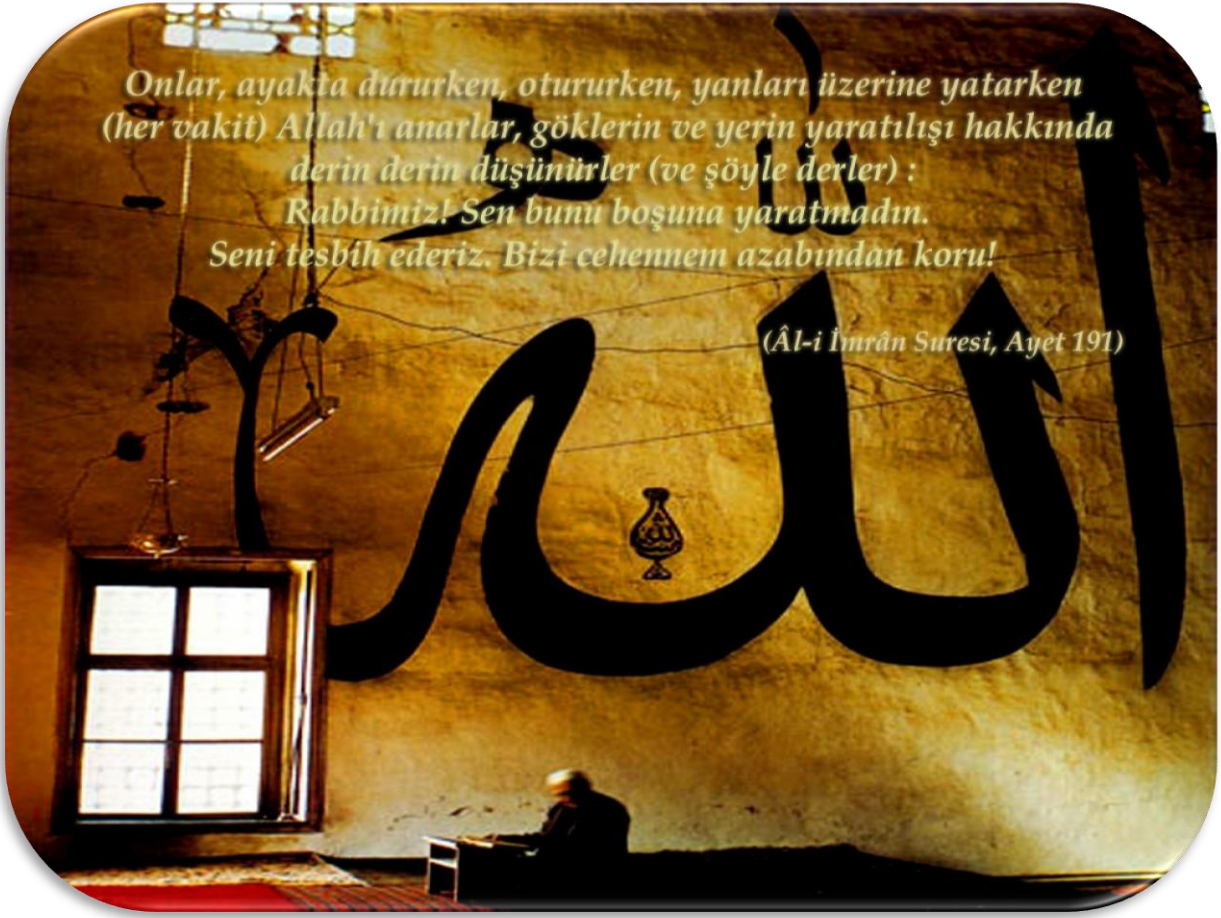 Onlar, ayakta dururken, otururken, yanları üzerine yatarken
(her vakit) Allah'ı anarlar, göklerin ve yerin yaratılışı hakkında
derin derin düşünürler (ve şöyle derler) :
Rabbimiz! Sen bunu boşuna yaratmadın.
Seni tesbih ederiz. Bizi cehennem azabından koru!
(Âl-i İmrân Suresi, Ayet 191)
الله